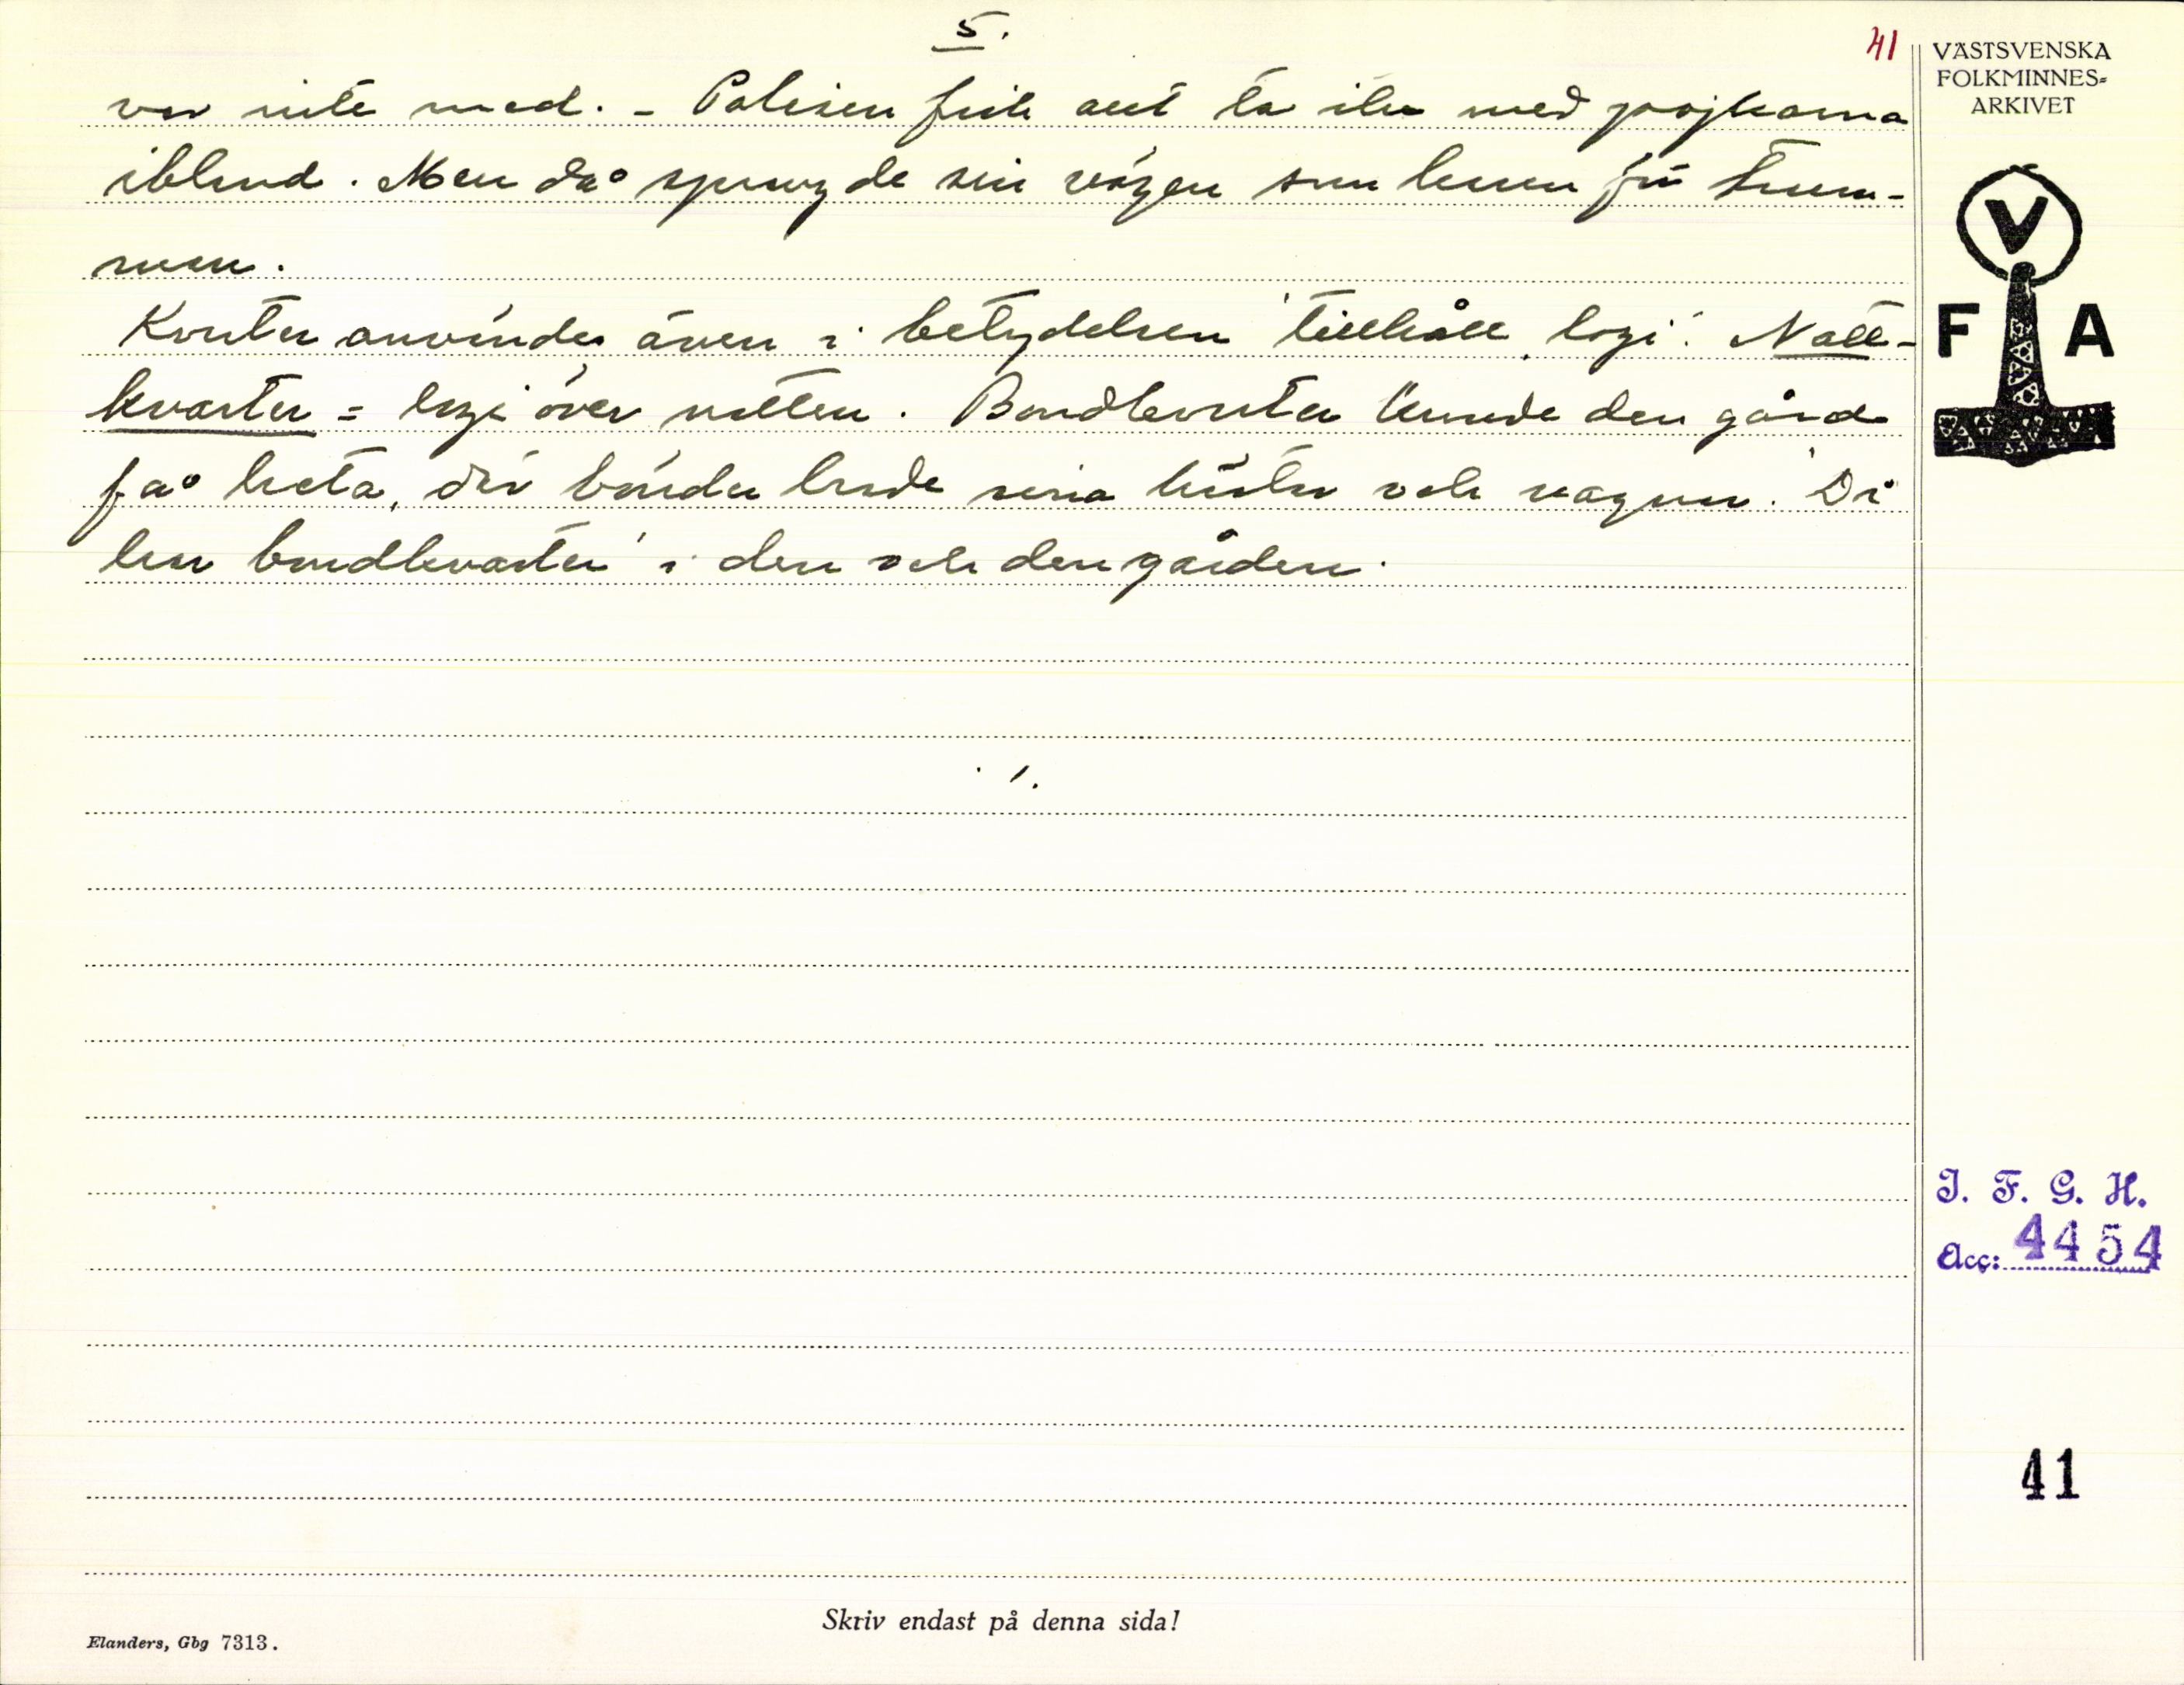 5.
41
var inte med. - Polisen fick allt ta itu med pojkarna
ibland. Men då sprang de sin väg som hessen för trum-
man.
Kvarter användes även i betydelsen 'tillhåll, logi'. Natt-
kvarter = logi över natten. Bondkvarter kunde den gård
få heta, där bönder hade sina hästar och vagnar. 'Di
har bondkvarter' i den och den gården.
VÄSTSVENSKA
FOLKMINNES=
ARKIVET
V
F A
I. F. G. H.
Acc: 4454
41
Skriv endast på denna sida!
Elanders, Gbg 7313.